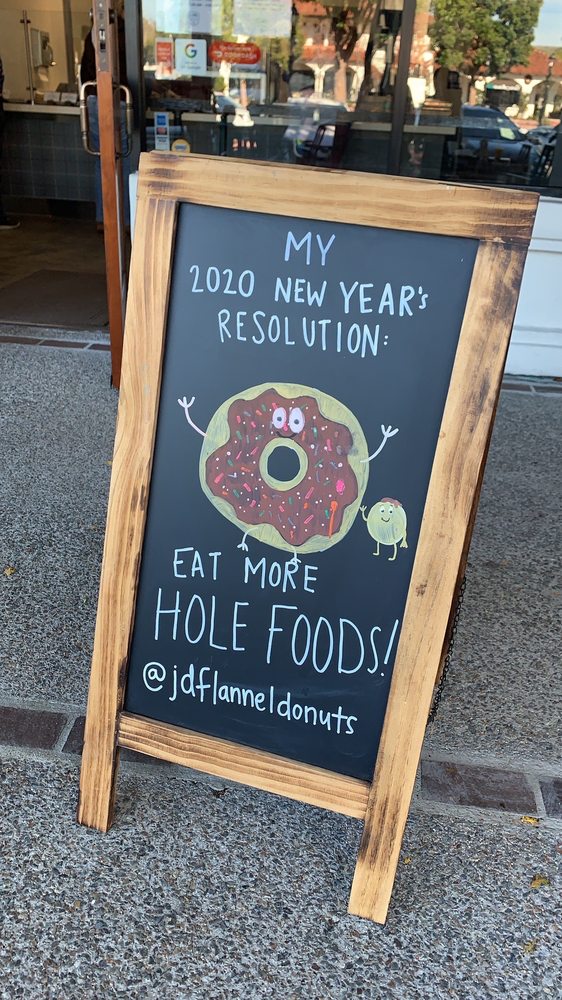 MY
2020 NEW YEAR'S
RESOLUTION:
EAT MORE
HOLE FOODS!
@jdflanneldonuts